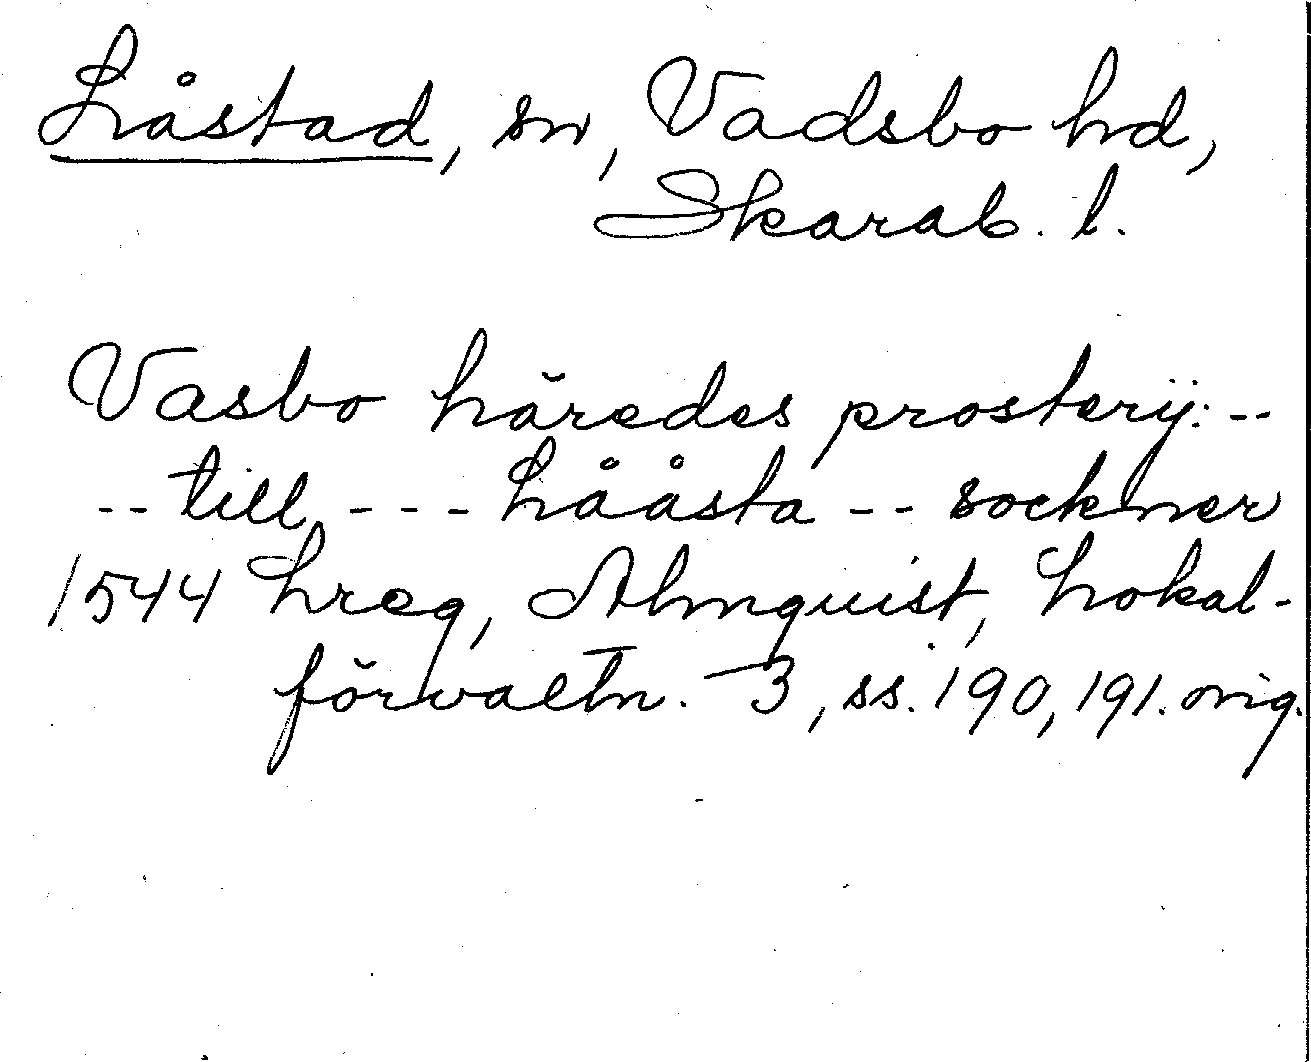 Låstad, sn, Vadsbo hd,
Skarab. l.
Vasbo häredes prosterij: --
-- till, --- Lååsta -- sockner
1544 Lreg, Almquist, Lokal-
förvaltn. 3, ss. 190, 191. orig.